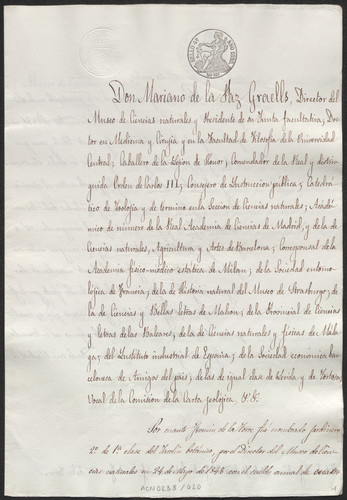 Don Mariano de la Paz Graells, Director del
Museo de Ciencias naturales y Presidente de su Junta facultativa; Doc-
tor en Medicina y Cirujía y en la Facultad de Filosofía de la Universidad
Central; Caballero de la Legion de Honor; Comendador de la Real y distin-
guida Orden de Carlos III; Consejero de Instruccion pública; Catedrá-
tico de Zoologia y de término en la Seccion de Ciencias naturales; Acadé-
mico de número de la Real Academia de Ciencias de Madrid, y de la de
Ciencias naturales, Agricultura y Artes de Barcelona; Corresponsal de la
Academia físico-médico estática de Milan; de la Sociedad entomo-
lógica de Francia; de la de Historia natural del Museo de Strasburgo; de
la de Ciencias y Bellas letras de Mahon; de la Provincial de Ciencias
y letras de las Baleares; de la de Ciencias naturales y físicas de Mála-
ga; del Instituto industrial de España; de la Sociedad económica bar-
celonesa de Amigos del pais; de las de igual clase de Lérida y de Tortosa;
Vocal de la Comision de la Carta geologica. &. &.
Por cuanto de la fué nombrado Jardinero
2º de 1ª clase del Jardin botánico, por el Director del Museo de Cien-
cias en 24 de Mayo de 1848 con el sueldo annual de
ACN0288/020